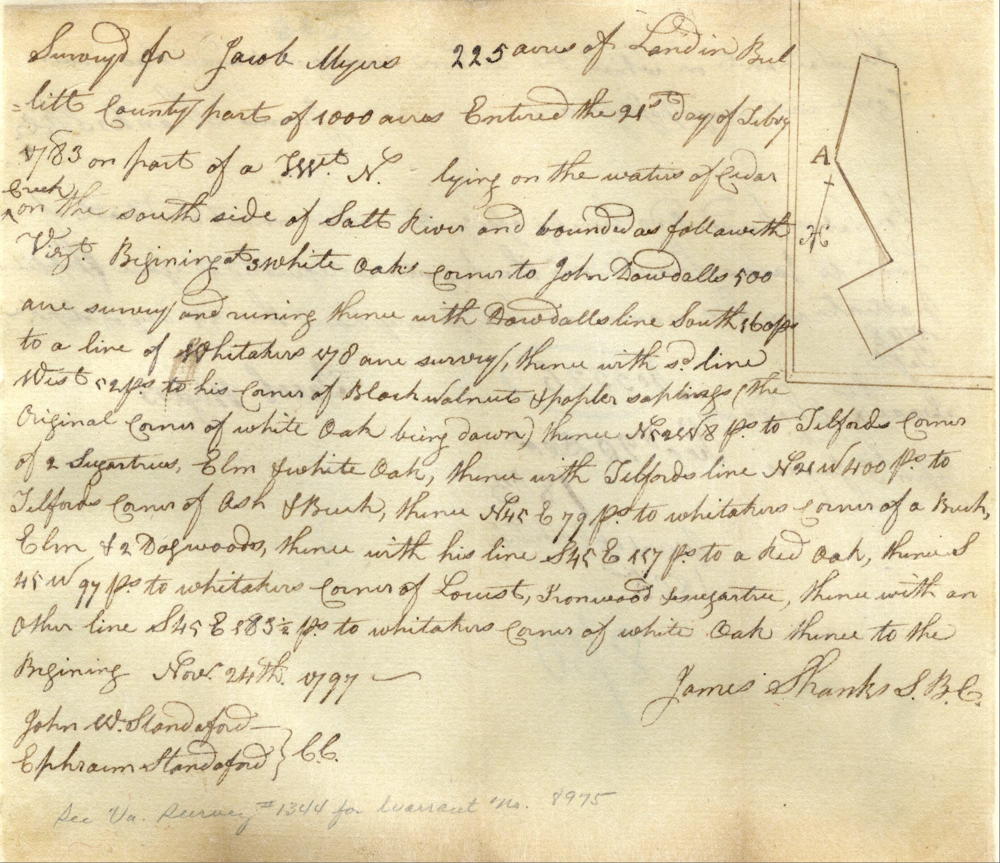 Survey'd for Jacob Myers 225 acres of Land in Bul
=litt County part of 1000 acres Entered the 21st day of Febry
1783 on part of a Wt. N. lying on the waters of Cedar
Creek
^ on the south side of Salt River and bounded as followith
Vizt. Begining at 3 White Oaks Corner to John Dowdalls 500
acre survey and runing thence with Dowdalls line South 160 ps
to a line of Whitakers 178 acre survey, thence with sd. line
West 52 ps to his Corner of Black walnut & popler saplings (the
Original Corner of white Oak being down) thence N52W 8 ps. to Tilfords Corner
of 2 Sugartrees, Elm & white Oak, thence with Tilfords line N21W 400 ps. to
Tilfords Corner of Ash & Buch, thence N45E 79 ps. to whitakers Corner of a Buch,
Elm & 2 Dogwoods, thence with his line S45E 157 ps. to a Red Oak, thence S
45W 97 ps. to whitakers Corner of Loucst, Ironwood & sugartree, thence with an
Other line S45E 183½ ps to whitakers Corner of white Oak thence to the
Begining Novr. 24th. 1797
James Shanks S.B.C.
John W. Standaford
Ephraim Standaford } C.C.
See Va. Survey #1344 for Warrant No. 8975
A
N